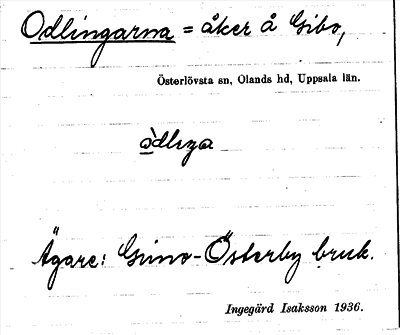 Odlingarna = åker å Gibo,
Österlövsta sn, Olands hd, Uppsala län.
Ägare: Gimo-Österby bruk.
Ingegärd Isaksson 1936.